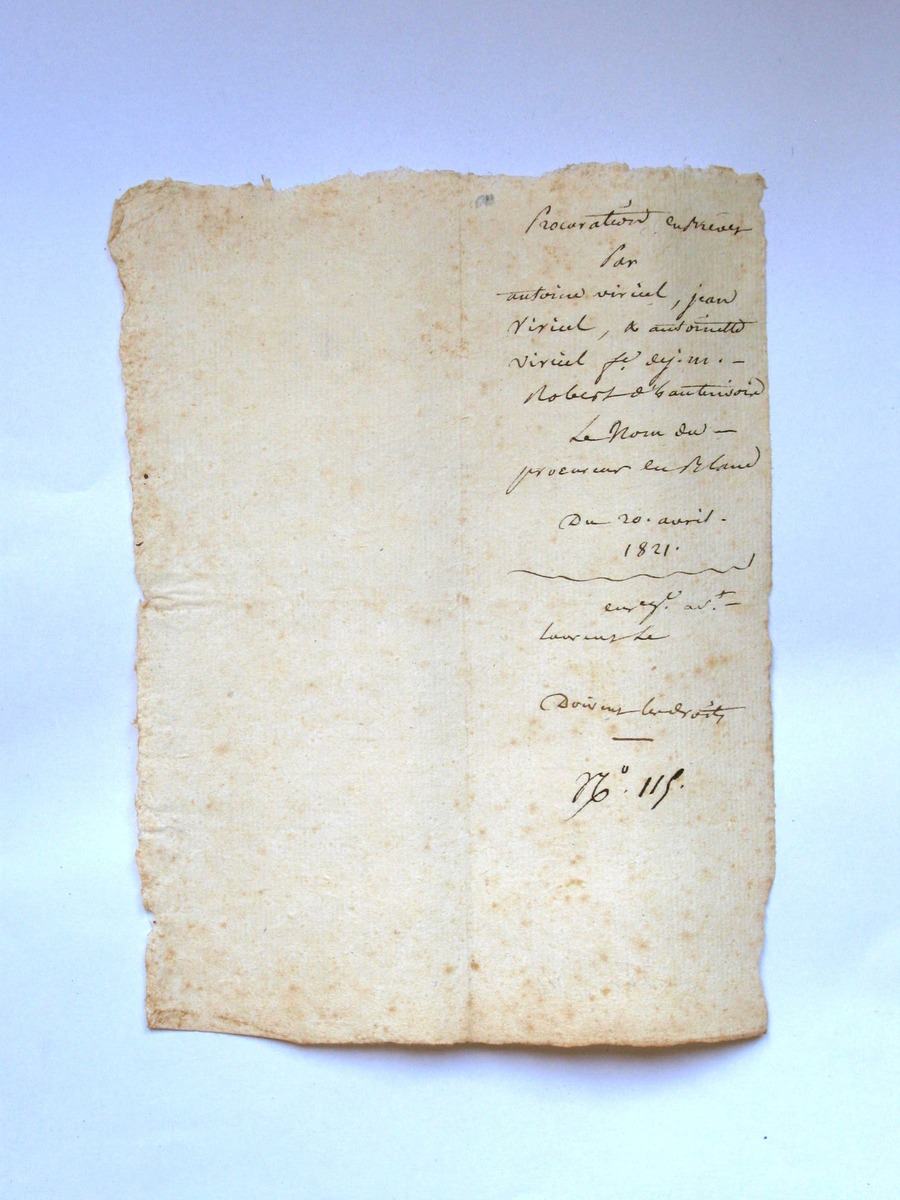 Procuration en Brevet
Par
antoine viricel, jean
Viricel, & antoinette
Viricel fe. de j. m. -
Robert d'hauterivoire
Le Nom du -
procureur en Blanc
Du 20. avril.
1821.
enregé. a St. -
laurent Le
Doivent les droits
No. 115.